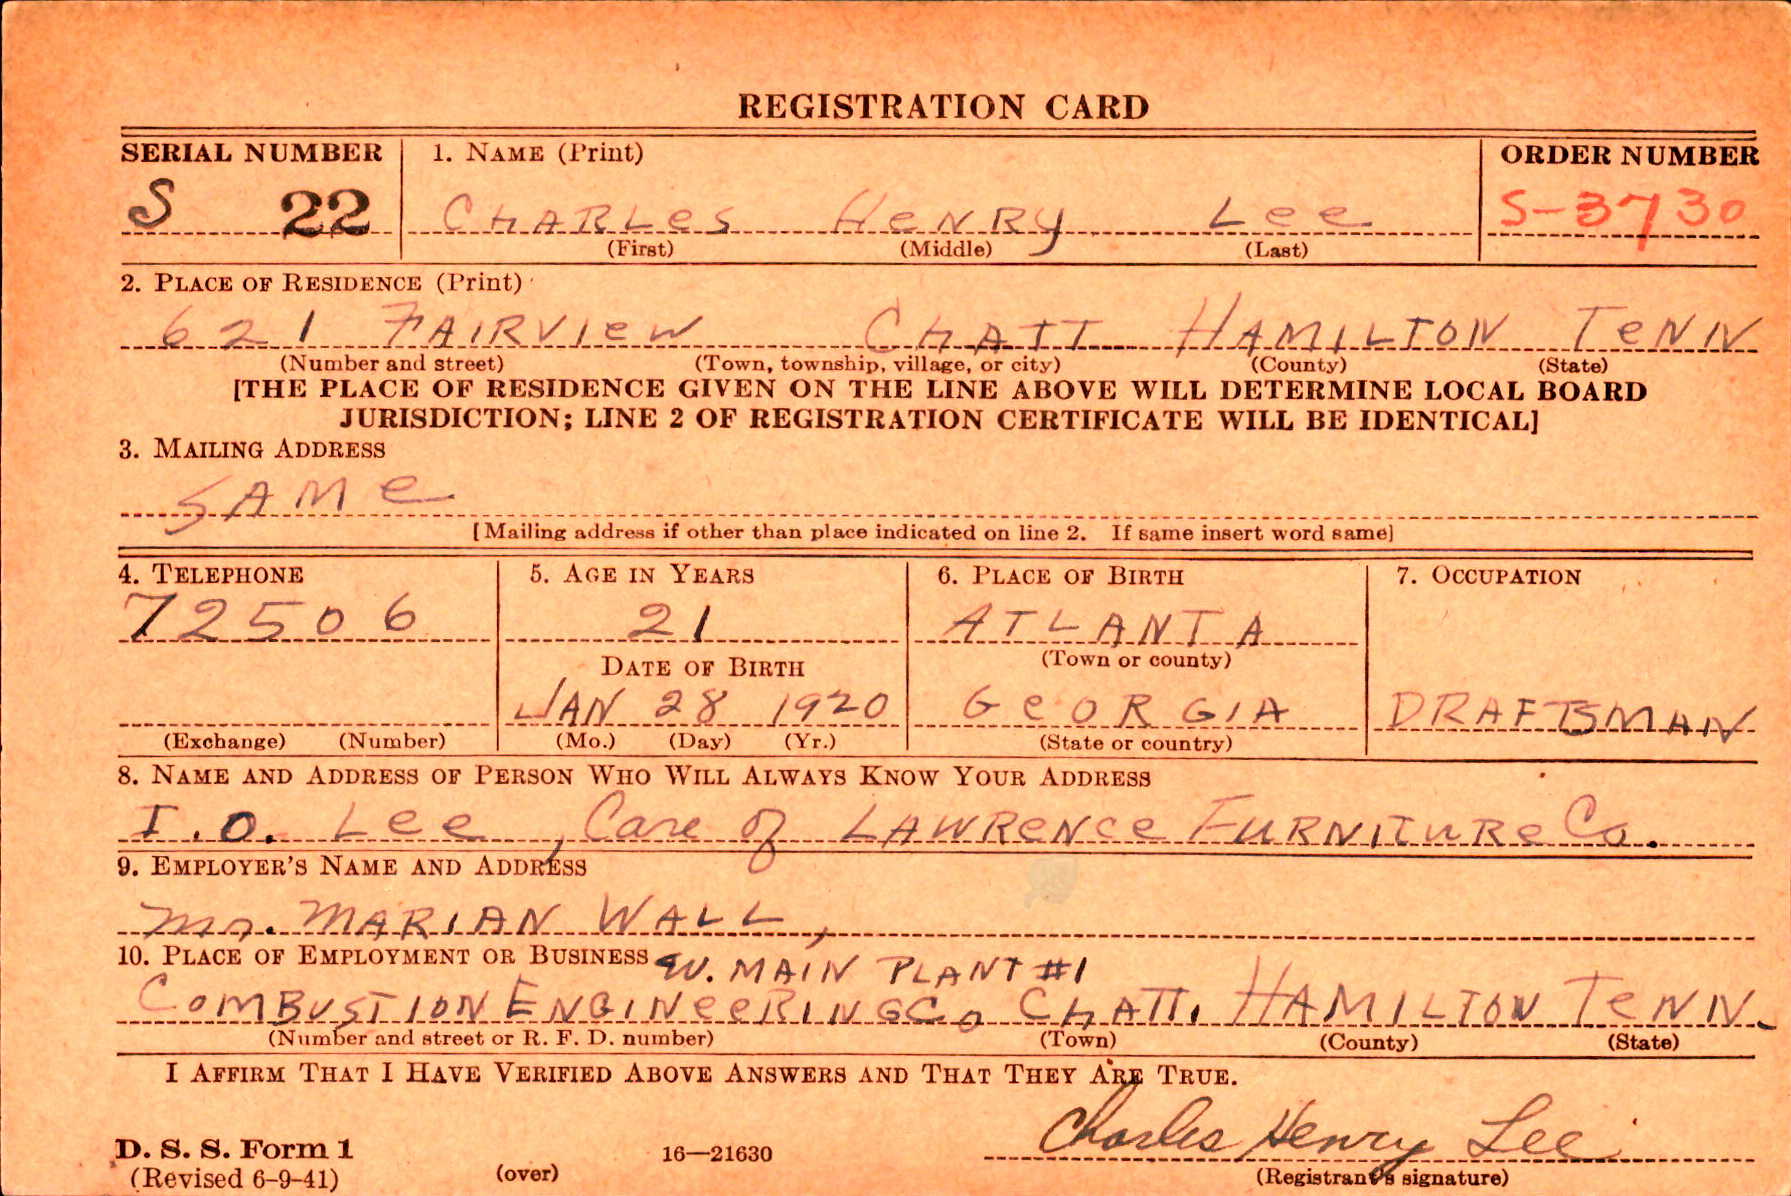 REGISTRATION CARD
SERIAL NUMBER 1. NAME (Print) ORDER NUMBER
S 22 CHARLes HeNRy Lee S-3730
(First) (Middle) (Last)
2. PLACE OF RESIDENCE (Print)
621 FAIRVIew CHATT HAMILTON TeNN
(Number and street) (Town, township, village, or city) (County) (State)
[THE PLACE OF RESIDENCE GIVEN ON THE LINE ABOVE WILL DETERMINE LOCAL BOARD
JURISDICTION; LINE 2 OF REGISTRATION CERTIFICATE WILL BE IDENTICAL]
3. MAILING ADDRESS
SAMe
[Mailing address if other than place indicated on line 2. If same insert word same]
4. TELEPHONE 5. AGE IN YEARS 6. PLACE OF BIRTH 7. OCCUPATION
72506 21 ATLANTA
DATE OF BIRTH (Town or county)
JAN 28 1920 GeORGIA DRAFTSMAN
(Exchange) (Number) (Mo.) (Day) (Yr.) (State or country)
8. NAME AND ADDRESS OF PERSON WHO WILL ALWAYS KNOW YOUR ADDRESS
I.O. Lee, Care of LAWReNce FURNITURe Co.
9. EMPLOYER'S NAME AND ADDRESS
Mr. MARIAN WALL,
10. PLACE OF EMPLOYMENT OR BUSINESS W. MAIN PLANT #1
COMBUSTION ENGINeeRING Co CHATT. HAMILTON TeNN.
(Number and street or R. F. D. number) (Town) (County) (State)
I AFFIRM THAT I HAVE VERIFIED ABOVE ANSWERS AND THAT THEY ARE TRUE.
Charles Henry Lee
D. S. S. Form 1 16—21630
(Revised 6-9-41) (over) (Registrant's signature)